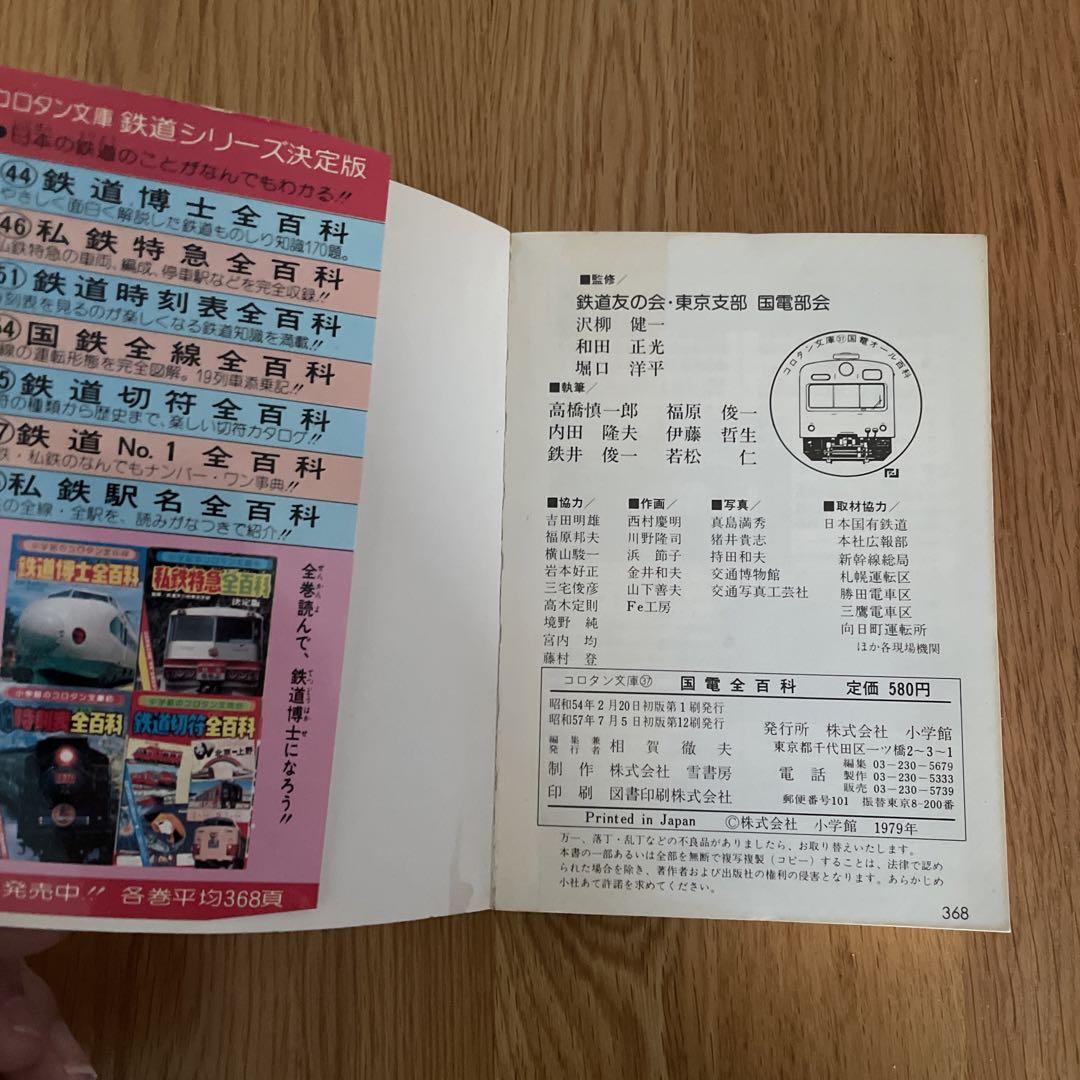 コロタン文庫 鉄道シリーズ決定版
●日本の鉄道のことがなんでもわかる!!
44 鉄道博士全百科
やさしく面白く解説した鉄道ものしり知識170題。
46 私鉄特急全百科
私鉄特急の車両、編成、停車駅などを完全収録!!
51 鉄道時刻表全百科
時刻表を見るのが楽しくなる鉄道知識を満載!!
国鉄全線全百科
線の運転形態を完全図解。19列車添乗記!!
鉄道切符全百科
符の種類から歴史まで、楽しい切符カタログ!!
鉄道No.1全百科
鉄・私鉄のなんでもナンバー・ワン事典!!
私鉄駅名全百科
の全線・全駅を、読みがなつきで紹介!!
小学館のコロタン文庫
鉄道博士全百科
私鉄特急全百科
決定版
小学館のコロタン文庫
時刻表全百科
小学館のコロタン文庫
鉄道切符全百科
北京―上野
全巻読んで、鉄道博士になろう!!
ぜんかんよ
てつどうはかせ
発売中!! 各巻平均368頁
■監修/
鉄道友の会・東京支部 国電部会
沢柳 健一
和田 正光
堀口 洋平
コロタン文庫㊲国電オール百科
■執筆/
高橋慎一郎 福原 俊一
内田 隆夫 伊藤 哲生
鉄井 俊一 若松 仁
■協力/
吉田明雄
福原邦夫
横山駿一
岩本好正
三宅俊彦
高木定則
境野 純
宮内 均
藤村 登
■作画/
西村慶明
川野隆司
浜 節子
金井和夫
山下善夫
Fe工房
■写真/
真島満秀
猪井貴志
持田和夫
交通博物館
交通写真工芸社
■取材協力/
日本国有鉄道
本社広報部
新幹線総局
札幌運転区
勝田電車区
三鷹電車区
向日町運転所
ほか各現場機関
コロタン文庫㊲ 国電全百科 定価 580円
昭和54年2月20日初版第1刷発行
昭和57年7月5日初版第12刷発行
編集兼発行者 相賀徹夫
制作 株式会社 雪書房
印刷 図書印刷株式会社
発行所 株式会社 小学館
東京都千代田区一ツ橋2~3~1
電話
編集 03-230-5679
製作 03-230-5333
販売 03-230-5739
郵便番号101 振替東京8-200番
Printed in Japan ©株式会社 小学館 1979年
万一、落丁・乱丁などの不良品がありましたら、お取り替えいたします。
本書の一部あるいは全部を無断で複写複製(コピー)することは、法律で認め
られた場合を除き、著作者および出版社の権利の侵害となります。あらかじめ
小社あて許諾を求めてください。
368